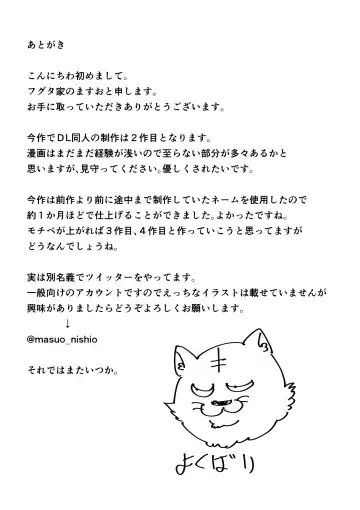 あとがき
こんにちわ初めまして。
フグタ家のますおと申します。
お手に取っていただきありがとうございます。
今作でＤＬ同人の制作は２作目となります。
漫画はまだまだ経験が浅いので至らない部分が多々あるかと
思いますが、見守ってください。優しくされたいです。
今作は前作より前に途中まで制作していたネームを使用したので
約１か月ほどで仕上げることができました。よかったですね。
モチベが上がれば３作目、４作目と作っていこうと思ってますが
どうなんでしょうね。
実は別名義でツイッターをやってます。
一般向けのアカウントですのでえっちなイラストは載せていませんが
興味がありましたらどうぞよろしくお願いします。
↓
@masuo_nishio
それではまたいつか。
よくばり